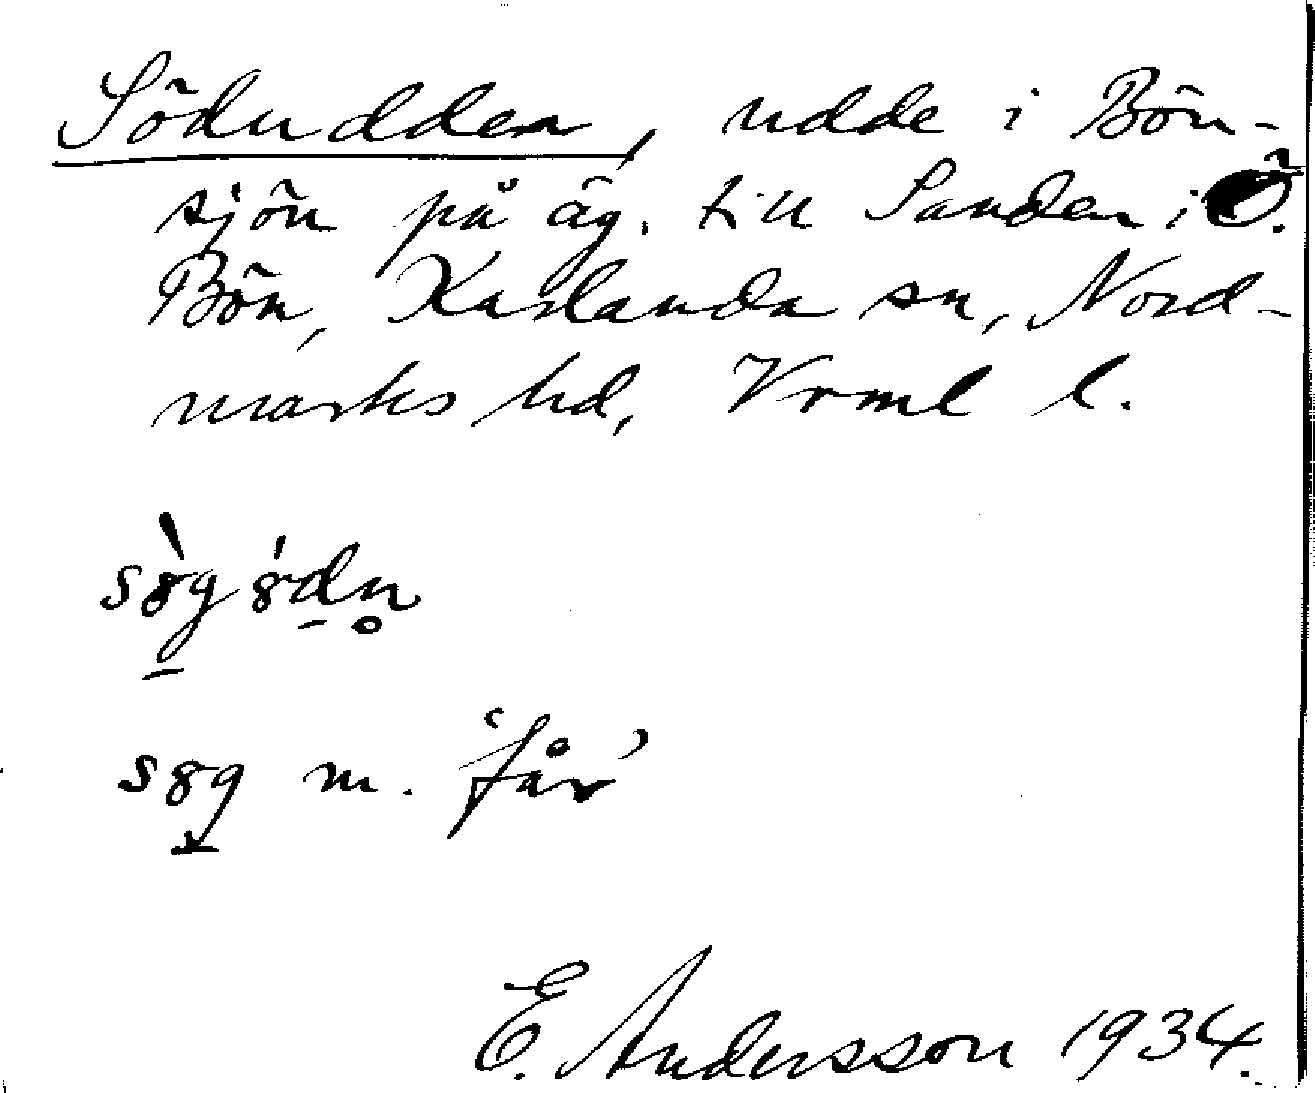 Södudden, udde i Bön-
sjön på äg. till Sanden i Ö.
Bön, Karlanda sn, Nord-
marks hd, Vrml l.
m. 'får'
E. Andersson 1934.